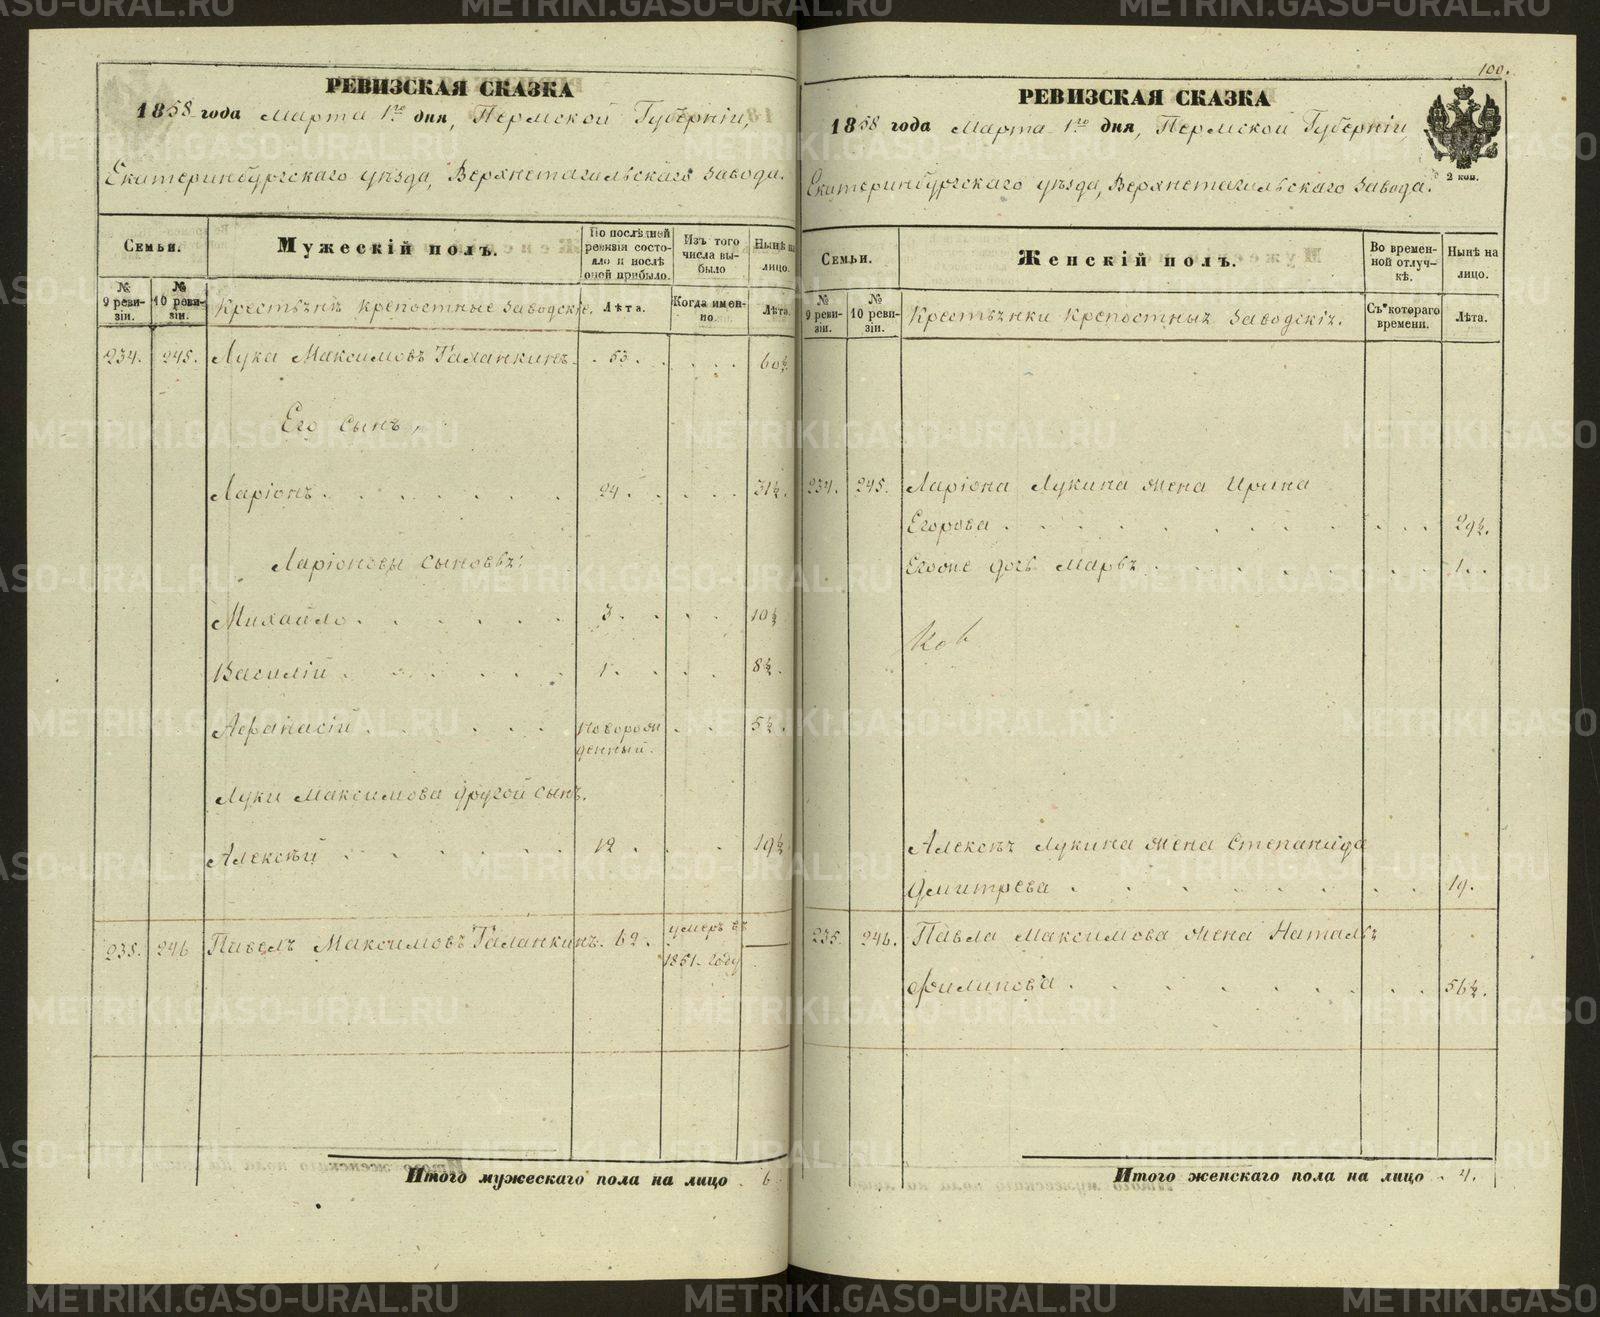 РЕВИЗСКАЯ СКАЗКА
1858 года Марта 1го дня, Пермской Губерніи,
Екатеринбургскаго уѣзда, Верхнетагильскаго Завода.
Семьи.
№ 9 ревизіи.
№ 10 ревизіи.
Мужескій полъ.
По послѣдней ревизіи состояло и послѣ оной прибыло.
Изъ того числа выбыло
Нынѣ на лицо.
Крестьяне крепостные Заводскіе.
Лѣта.
Когда именно.
Лѣта.
234. 245. Лука Максимовъ Галанкинъ. 53. 60½
Его сынъ,
Ларіонъ 24. 31½.
Ларіоновы сыновья:
Михайло 3. 10½
Василій 1. 8½.
Афанасій новорожденный. 5½.
Луки Максимова другой сынъ.
Алексѣй 12. 19½
235. 246 Павелъ Максимовъ Галанкинъ. 62. умеръ въ 1851. году
Итого мужескаго пола на лицо 6
100.
РЕВИЗСКАЯ СКАЗКА
1858 года Марта 1го дня, Пермской Губерніи,
Екатеринбургскаго уѣзда, Верхнетагильскаго Завода.
2 коп.
Семьи.
№ 9 ревизіи.
№ 10 ревизіи.
Женскій полъ.
Во временной отлучкѣ.
Нынѣ на лицо.
Крестьянки Крепостныя Заводскія.
Съ котораго времени.
Лѣта.
234. 245. Ларіона Лукина жена Ирина
Егорова 29½.
Егоже дочь Марья 1.
Алексѣя Лукина жена Степанида
Дмитрева 19.
235. 246. Павла Максимова жена Наталья
Филипова 56½.
Итого женскаго пола на лицо 4.
METRIKI.GASO-URAL.RU